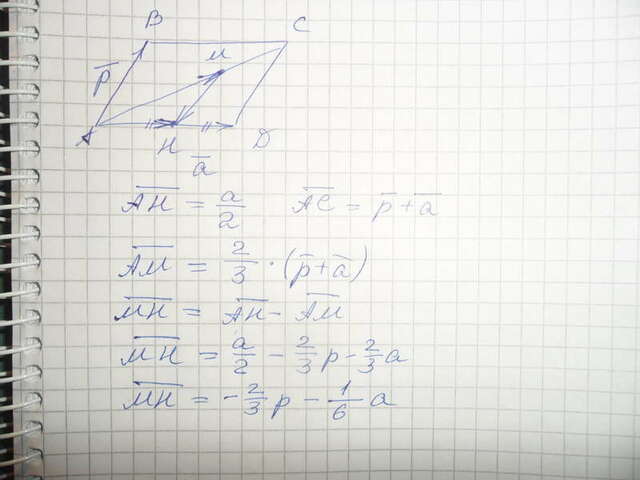 B C
p̅ M
A H D
a̅
A̅H̅ = a/2 A̅C̅ = p̅ + a̅
A̅M̅ = 2/3 · (p̅ + a̅)
M̅H̅ = A̅H̅ - A̅M̅
M̅H̅ = a/2 - 2/3 p - 2/3 a
M̅H̅ = - 2/3 p - 1/6 a